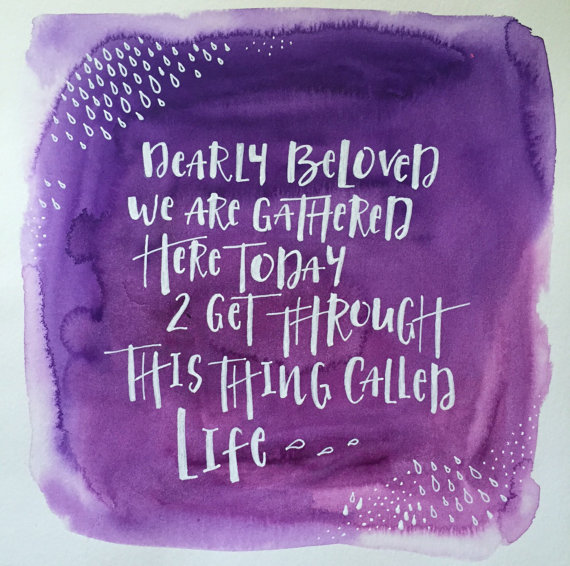 DEARLY BELOVED
WE ARE GATHERED
HERE TODAY
2 GET THROUGH
THIS THING CALLED
LIFE...